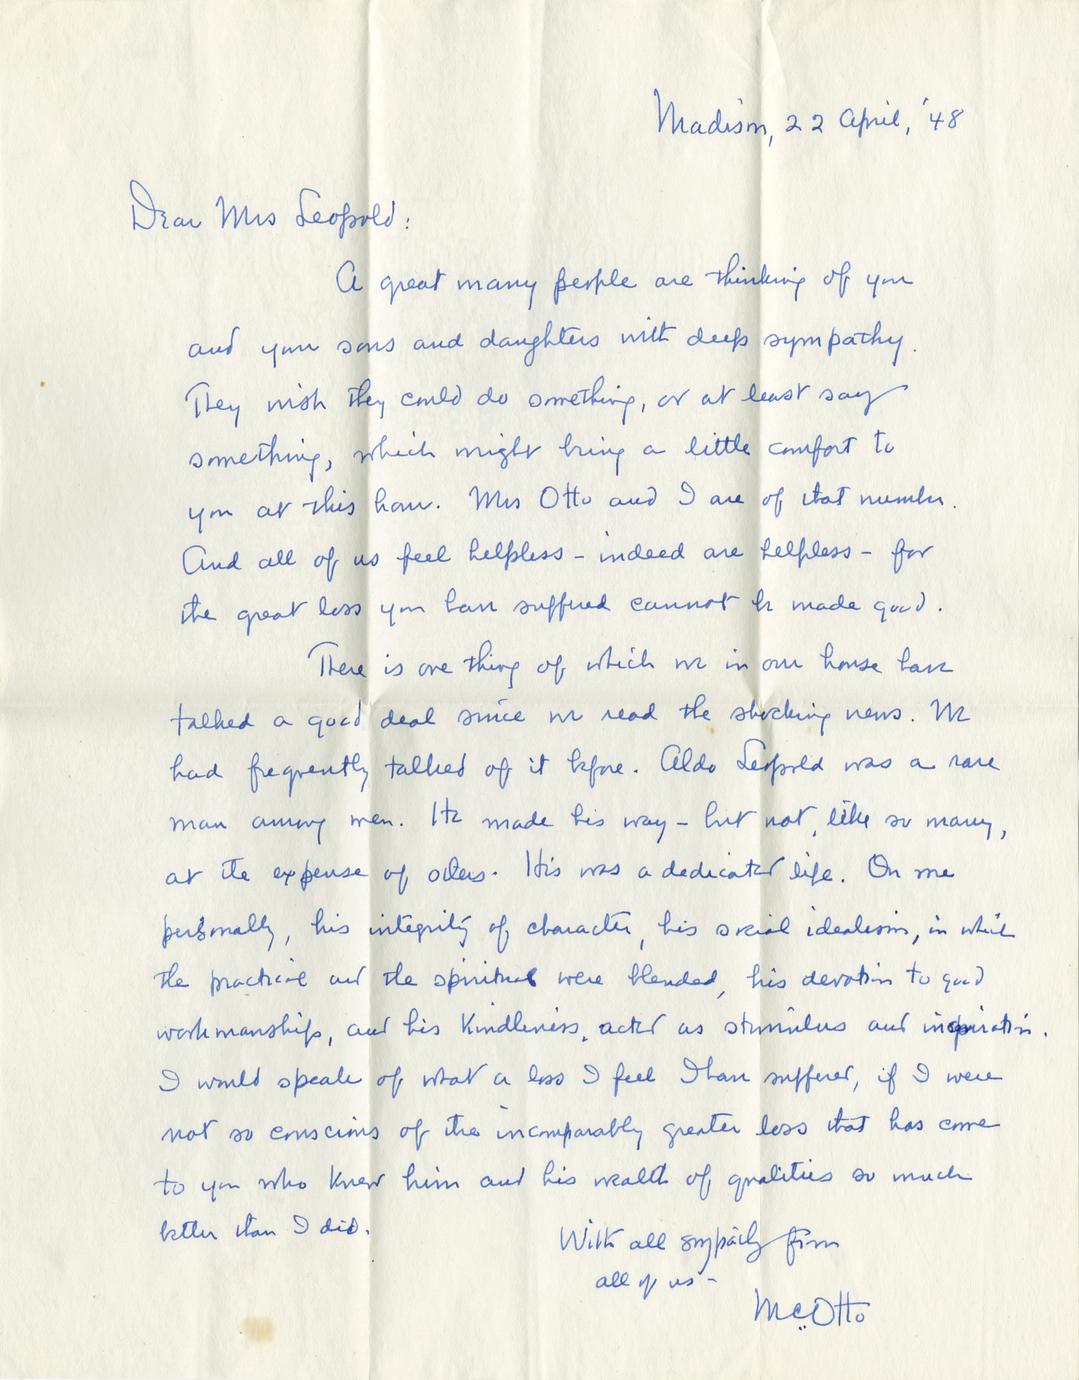 Madison, 22 April, '48
Dear Mrs Leopold:
A great many people are thinking of you
and your sons and daughters with deep sympathy.
They wish they could do something, or at least say
something, which might bring a little comfort to
you at this hour. Mrs Otto and I are of that number.
And all of us feel helpless – indeed are helpless – for
the great loss you have suffered cannot be made good.
There is one thing of which we in our house have
talked a good deal since we read the shocking news. We
had frequently talked of it before. Aldo Leopold was a rare
man among men. He made his way – but not, like so many,
at the expense of others. His was a dedicated life. On me
personally, his integrity of character, his social idealism, in which
the practical and the spiritual were blended, his devotion to good
workmanship, and his kindliness, acted as stimulus and inspiration.
I would speak of what a loss I feel I have suffered, if I were
not so conscious of the incomparably greater loss that has come
to you who knew him and his wealth of qualities so much
better than I did.
With all sympathy from
all of us –
M.C. Otto